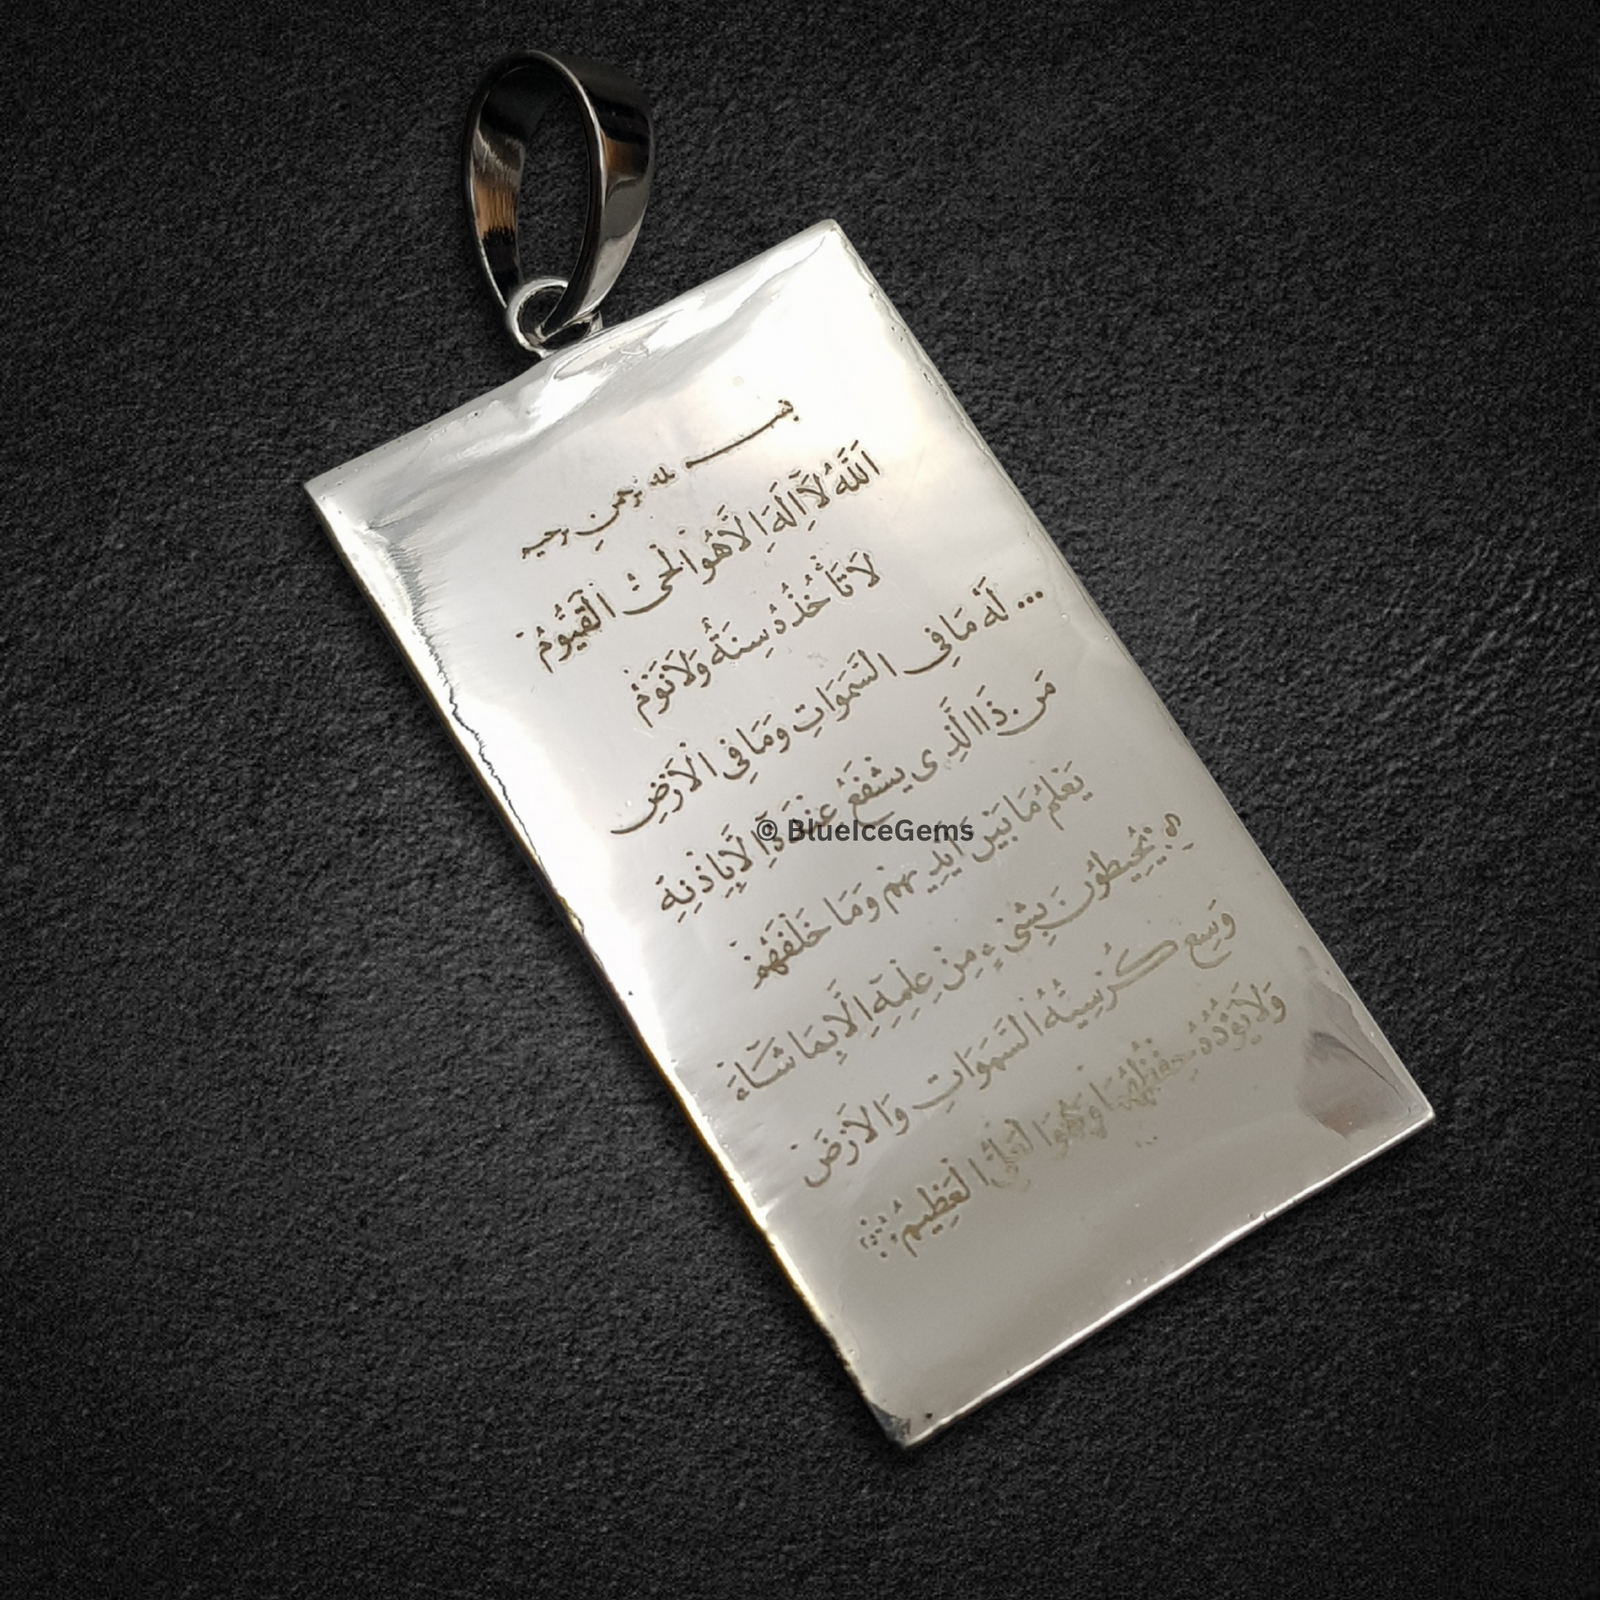 بسم الله الرحمن الرحيم
اَللّٰهُ لَآ اِلٰهَ اِلَّا هُوَ الْحَىُّ الْقَيُّومُ
لَا تَأْخُذُهُ سِنَةٌ وَلَا نَوْمٌ
... لَهُ مَا فِى السَّمٰوَاتِ وَمَا فِى الْاَرْضِ
مَنْ ذَا الَّذِى يَشْفَعُ عِنْدَهُ اِلَّا بِاِذْنِهِ
يَعْلَمُ مَا بَيْنَ اَيْدِيهِمْ وَمَا خَلْفَهُمْ
يُحِيطُونَ بِشَىْءٍ مِنْ عِلْمِهِ اِلَّا بِمَا شَآءَ
وَسِعَ كُرْسِيُّهُ السَّمٰوَاتِ وَالْاَرْضَ
وَلَا يَؤُدُهُ حِفْظُهُمَا وَهُوَ الْعَلِىُّ الْعَظِيمُ
© BlueIceGems